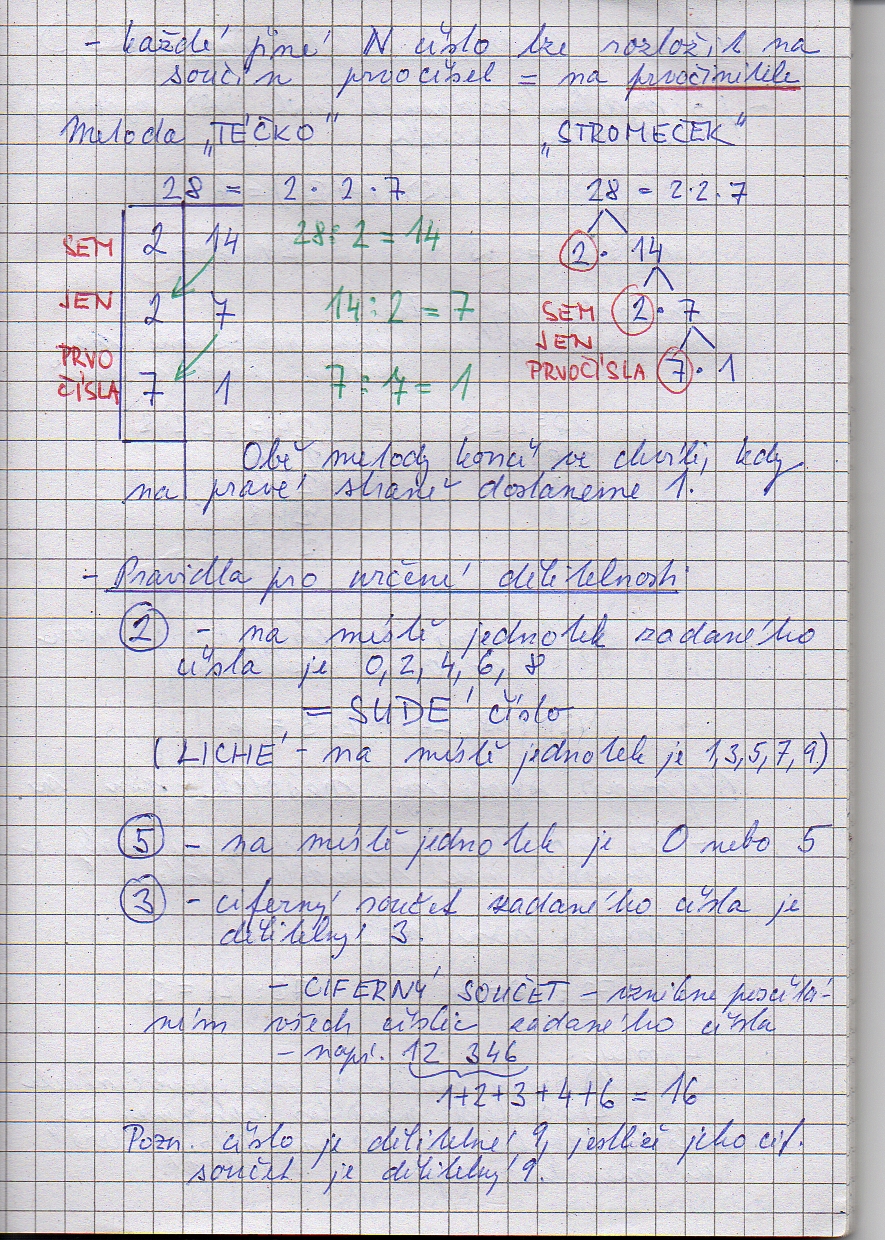 - každé jiné N číslo lze rozložit na
součin prvočísel = na prvočinitele
Metoda „TÉČKO“ „STROMEČEK“
28 = 2 · 2 · 7 28 = 2·2·7
SEM 2 14 28 : 2 = 14 2 · 14
JEN 2 7 14 : 2 = 7 SEM 2 · 7
JEN
PRVO PRVOČÍSLA 7 · 1
ČÍSLA 7 1 7 : 7 = 1
Obě metody končí ve chvíli, kdy
na pravé straně dostaneme 1.
- Pravidla pro určení dělitelnosti
2 - na místě jednotek zadaného
čísla je 0, 2, 4, 6, 8
= SUDÉ číslo
(LICHÉ - na místě jednotek je 1,3,5,7,9)
5 - na místě jednotek je 0 nebo 5
3 - ciferný součet zadaného čísla je
dělitelný 3.
- CIFERNÝ SOUČET - vznikne posčítá-
ním všech číslic zadaného čísla
- např. 12 346
1+2+3+4+6 = 16
Pozn. číslo je dělitelné 9, jestliže jeho cif.
součet je dělitelný 9.